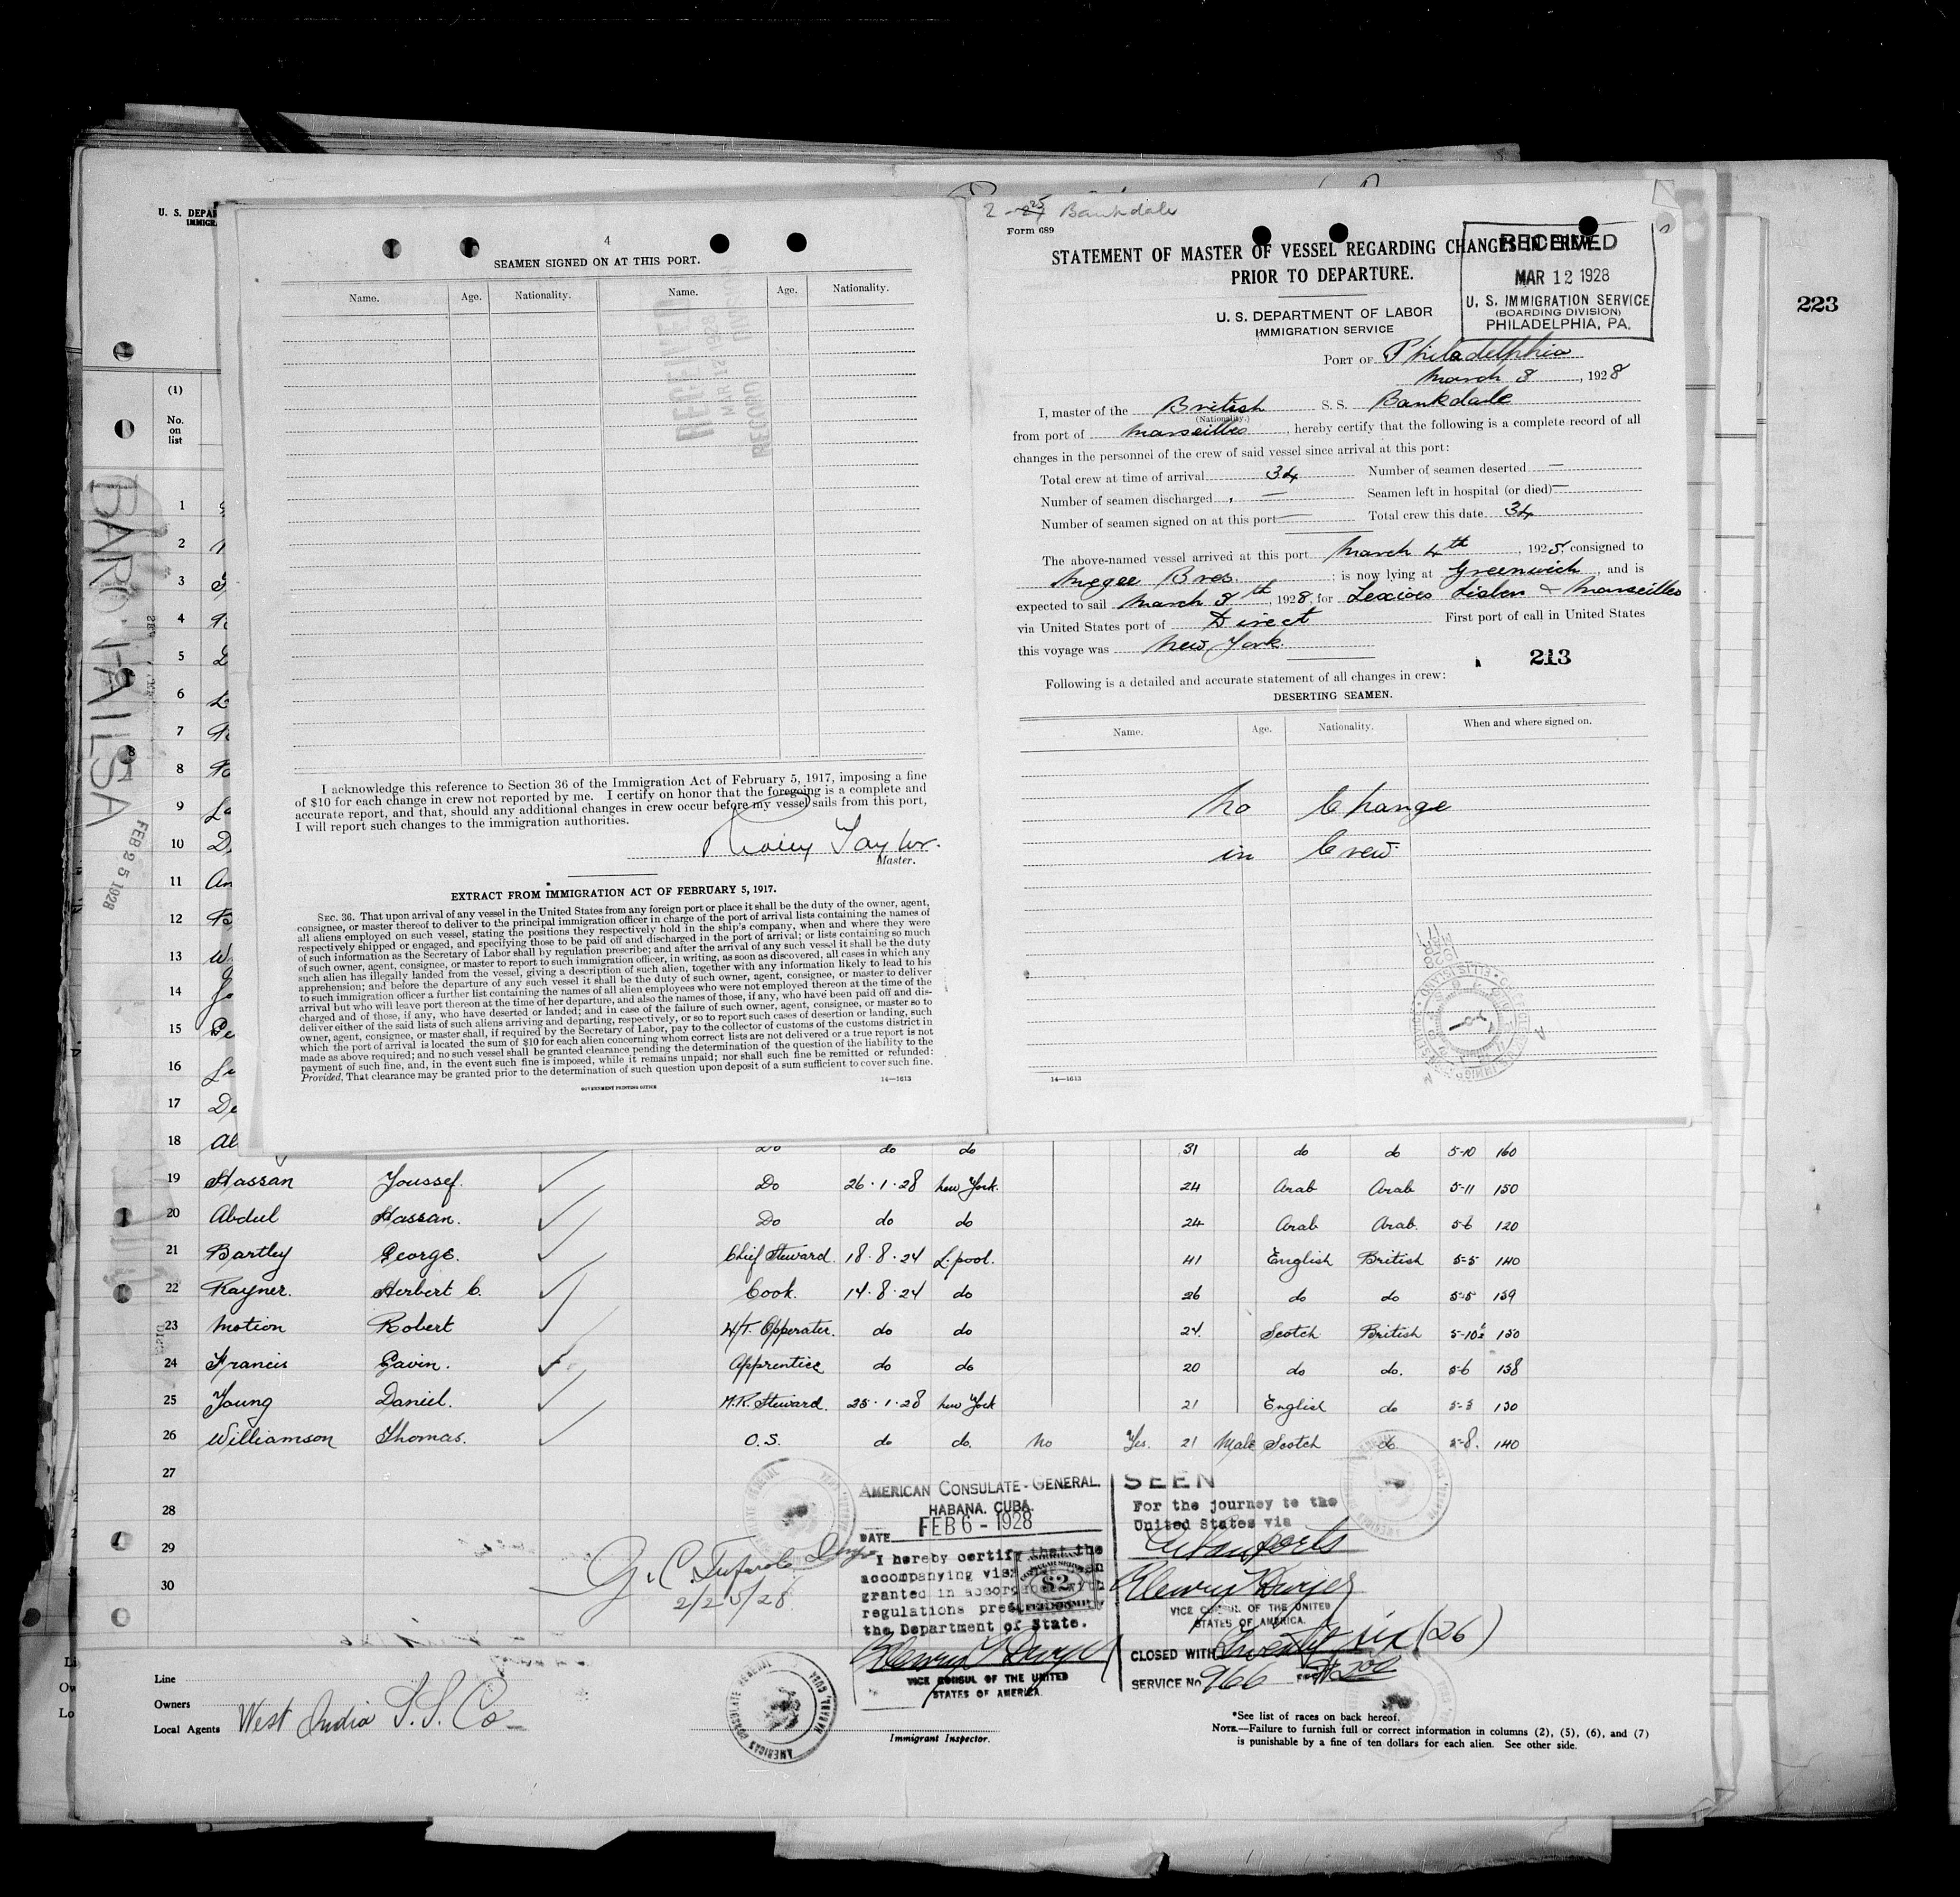 U. S. DEPA
IMMIGR
(1)
No.
on
list
BARON AILSA
FEB 25 1928
223
4
SEAMEN SIGNED ON AT THIS PORT.
Name. Age. Nationality. Name. Age. Nationality.
I acknowledge this reference to Section 36 of the Immigration Act of February 5, 1917, imposing a fine
of $10 for each change in crew not reported by me. I certify on honor that the foregoing is a complete and
accurate report, and that, should any additional changes in crew occur before my vessel sails from this port,
I will report such changes to the immigration authorities.
Taylor.
Master.
EXTRACT FROM IMMIGRATION ACT OF FEBRUARY 5, 1917.
SEC. 36. That upon arrival of any vessel in the United States from any foreign port or place it shall be the duty of the owner, agent,
consignee, or master thereof to deliver to the principal immigration officer in charge of the port of arrival lists containing the names of
all aliens employed on such vessel, stating the positions they respectively hold in the ship's company, when and where they were
respectively shipped or engaged, and specifying those to be paid off and discharged in the port of arrival; or lists containing so much
of such information as the Secretary of Labor shall by regulation prescribe; and after the arrival of any such vessel it shall be the duty
of such owner, agent, consignee, or master to report to such immigration officer, in writing, as soon as discovered, all cases in which any
such alien has illegally landed from the vessel, giving a description of such alien, together with any information likely to lead to his
apprehension; and before the departure of any such vessel it shall be the duty of such owner, agent, consignee, or master to deliver
to such immigration officer a further list containing the names of all alien employees who were not employed thereon at the time of the
arrival but who will leave port thereon at the time of her departure, and also the names of those, if any, who have been paid off and dis-
charged and of those, if any, who have deserted or landed; and in case of the failure of such owner, agent, consignee, or master so to
deliver either of the said lists of such aliens arriving and departing, respectively, or so to report such cases of desertion or landing, such
owner, agent, consignee, or master shall, if required by the Secretary of Labor, pay to the collector of customs of the customs district in
which the port of arrival is located the sum of $10 for each alien concerning whom correct lists are not delivered or a true report is not
made as above required; and no such vessel shall be granted clearance pending the determination of the question of the liability to the
payment of such fine, and, in the event such fine is imposed, while it remains unpaid; nor shall such fine be remitted or refunded:
Provided, That clearance may be granted prior to the determination of such question upon deposit of a sum sufficient to cover such fine.
14—1613
GOVERNMENT PRINTING OFFICE
2 - 25 Bankdale
Form 689
STATEMENT OF MASTER OF VESSEL REGARDING CHANGES IN CREW
PRIOR TO DEPARTURE.
RECEIVED
MAR 12 1928
U. S. IMMIGRATION SERVICE
(BOARDING DIVISION)
PHILADELPHIA, PA.
U. S. DEPARTMENT OF LABOR
IMMIGRATION SERVICE
PORT OF Philadelphia
March 8, 1928
I, master of the British S. S. Bankdale
(Nationality.)
from port of Marseilles, hereby certify that the following is a complete record of all
changes in the personnel of the crew of said vessel since arrival at this port:
Total crew at time of arrival 34 Number of seamen deserted —
Number of seamen discharged — Seamen left in hospital (or died) —
Number of seamen signed on at this port — Total crew this date 34
The above-named vessel arrived at this port March 4th, 1928, consigned to
Megee Bros. ; is now lying at Greenwich, and is
expected to sail March 8th, 1928, for Lexioes Lisbon & Marseilles
via United States port of Direct First port of call in United States
this voyage was New York.
213
Following is a detailed and accurate statement of all changes in crew:
DESERTING SEAMEN.
Name. Age. Nationality. When and where signed on.
No Change
in Crew
14—1613
1
2
3
4
5
6
7
8
9
10
11
12
13
14
15
16
17
18 do do 31 do do 5-10 160
19 Hassan Youssef. Do 26·1·28 New York. 24 Arab Arab 5-11 150
20 Abdul Hassan. Do do do 24 Arab Arab. 5-6 120
21 Bartley George. Chief Steward. 18·8·24 L.pool. 41 English British 5-5 140
22 Rayner. Herbert C. Cook. 14·8·24 do 26 do do 5-5 139
23 Motion Robert W/T. Opperater. do do 24. Scotch British 5-10½ 150
24 Francis Gavin. Apprentice do do 20 do do. 5-6 138
25 Young Daniel. M.R. Steward. 25·1·28 New York 21 English do 5-5 130
26 Williamson Thomas. O.S. do do. No Yes. 21 Male Scotch do. 5-8. 140
27
28
29
30
2/25/28
AMERICAN CONSULATE-GENERAL.
HABANA, CUBA.
DATE FEB 6 - 1928
I hereby certify that the
accompanying visa been
granted in accordance with
regulations
the Department of State.
VICE CONSUL OF THE UNITED
STATES OF AMERICA.
SEEN
For the journey to the
United States via
Cuban ports
VICE CONSUL OF THE UNITED
STATES OF AMERICA.
CLOSED WITH Twenty six (26)
SERVICE No 966
Line
Owners
Local Agents West India S.S. Co
Immigrant Inspector.
*See list of races on back hereof.
NOTE.—Failure to furnish full or correct information in columns (2), (5), (6), and (7)
is punishable by a fine of ten dollars for each alien. See other side.